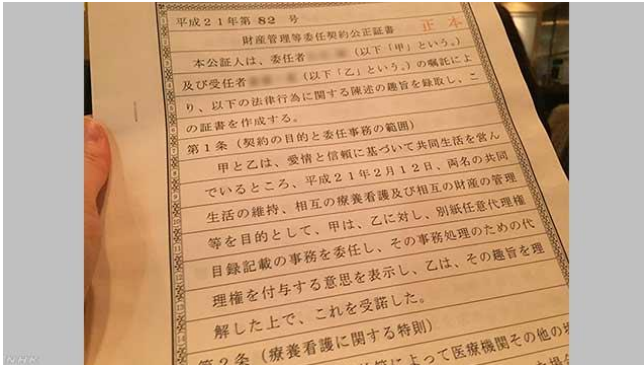 平成21年第82号
正本
財産管理等委任契約公正証書
本公証人は、委任者 (以下「甲」という。)
及び受任者 (以下「乙」という。) の嘱託によ
り、以下の法律行為に関する陳述の趣旨を録取し、こ
の証書を作成する。
第1条 (契約の目的と委任事務の範囲)
甲と乙は、愛情と信頼に基づいて共同生活を営ん
でいるところ、平成21年2月12日、両名の共同
生活の維持、相互の療養看護及び相互の財産の管理
等を目的として、甲は、乙に対し、別紙任意代理権
目録記載の事務を委任し、その事務処理のための代
理権を付与する意思を表示し、乙は、その趣旨を理
解した上で、これを受諾した。
第2条 (療養看護に関する特則)
によって医療機関その他の
NHK